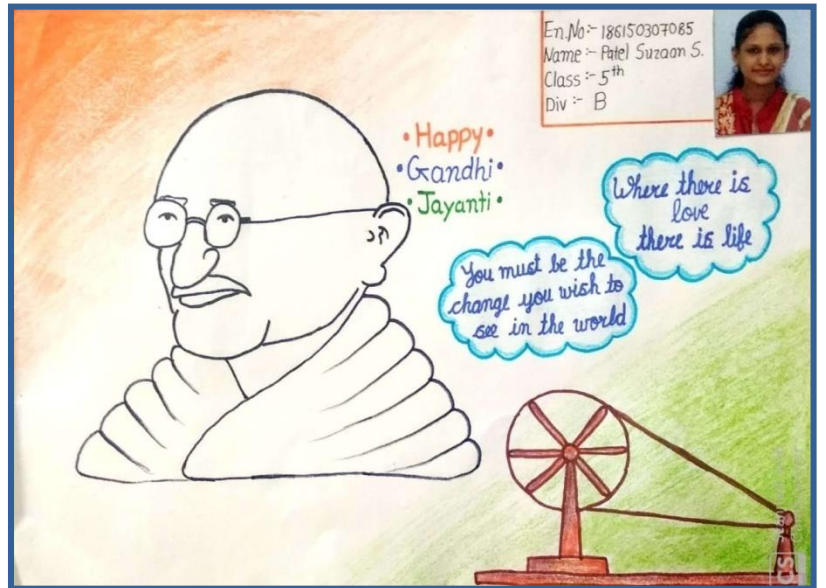 En.No:- 186150307085
Name:- Patel Suzaan S.
Class:- 5th
Div:- B
• Happy •
• Gandhi •
• Jayanti •
Where there is
love
there is life
You must be the
change you wish to
see in the world